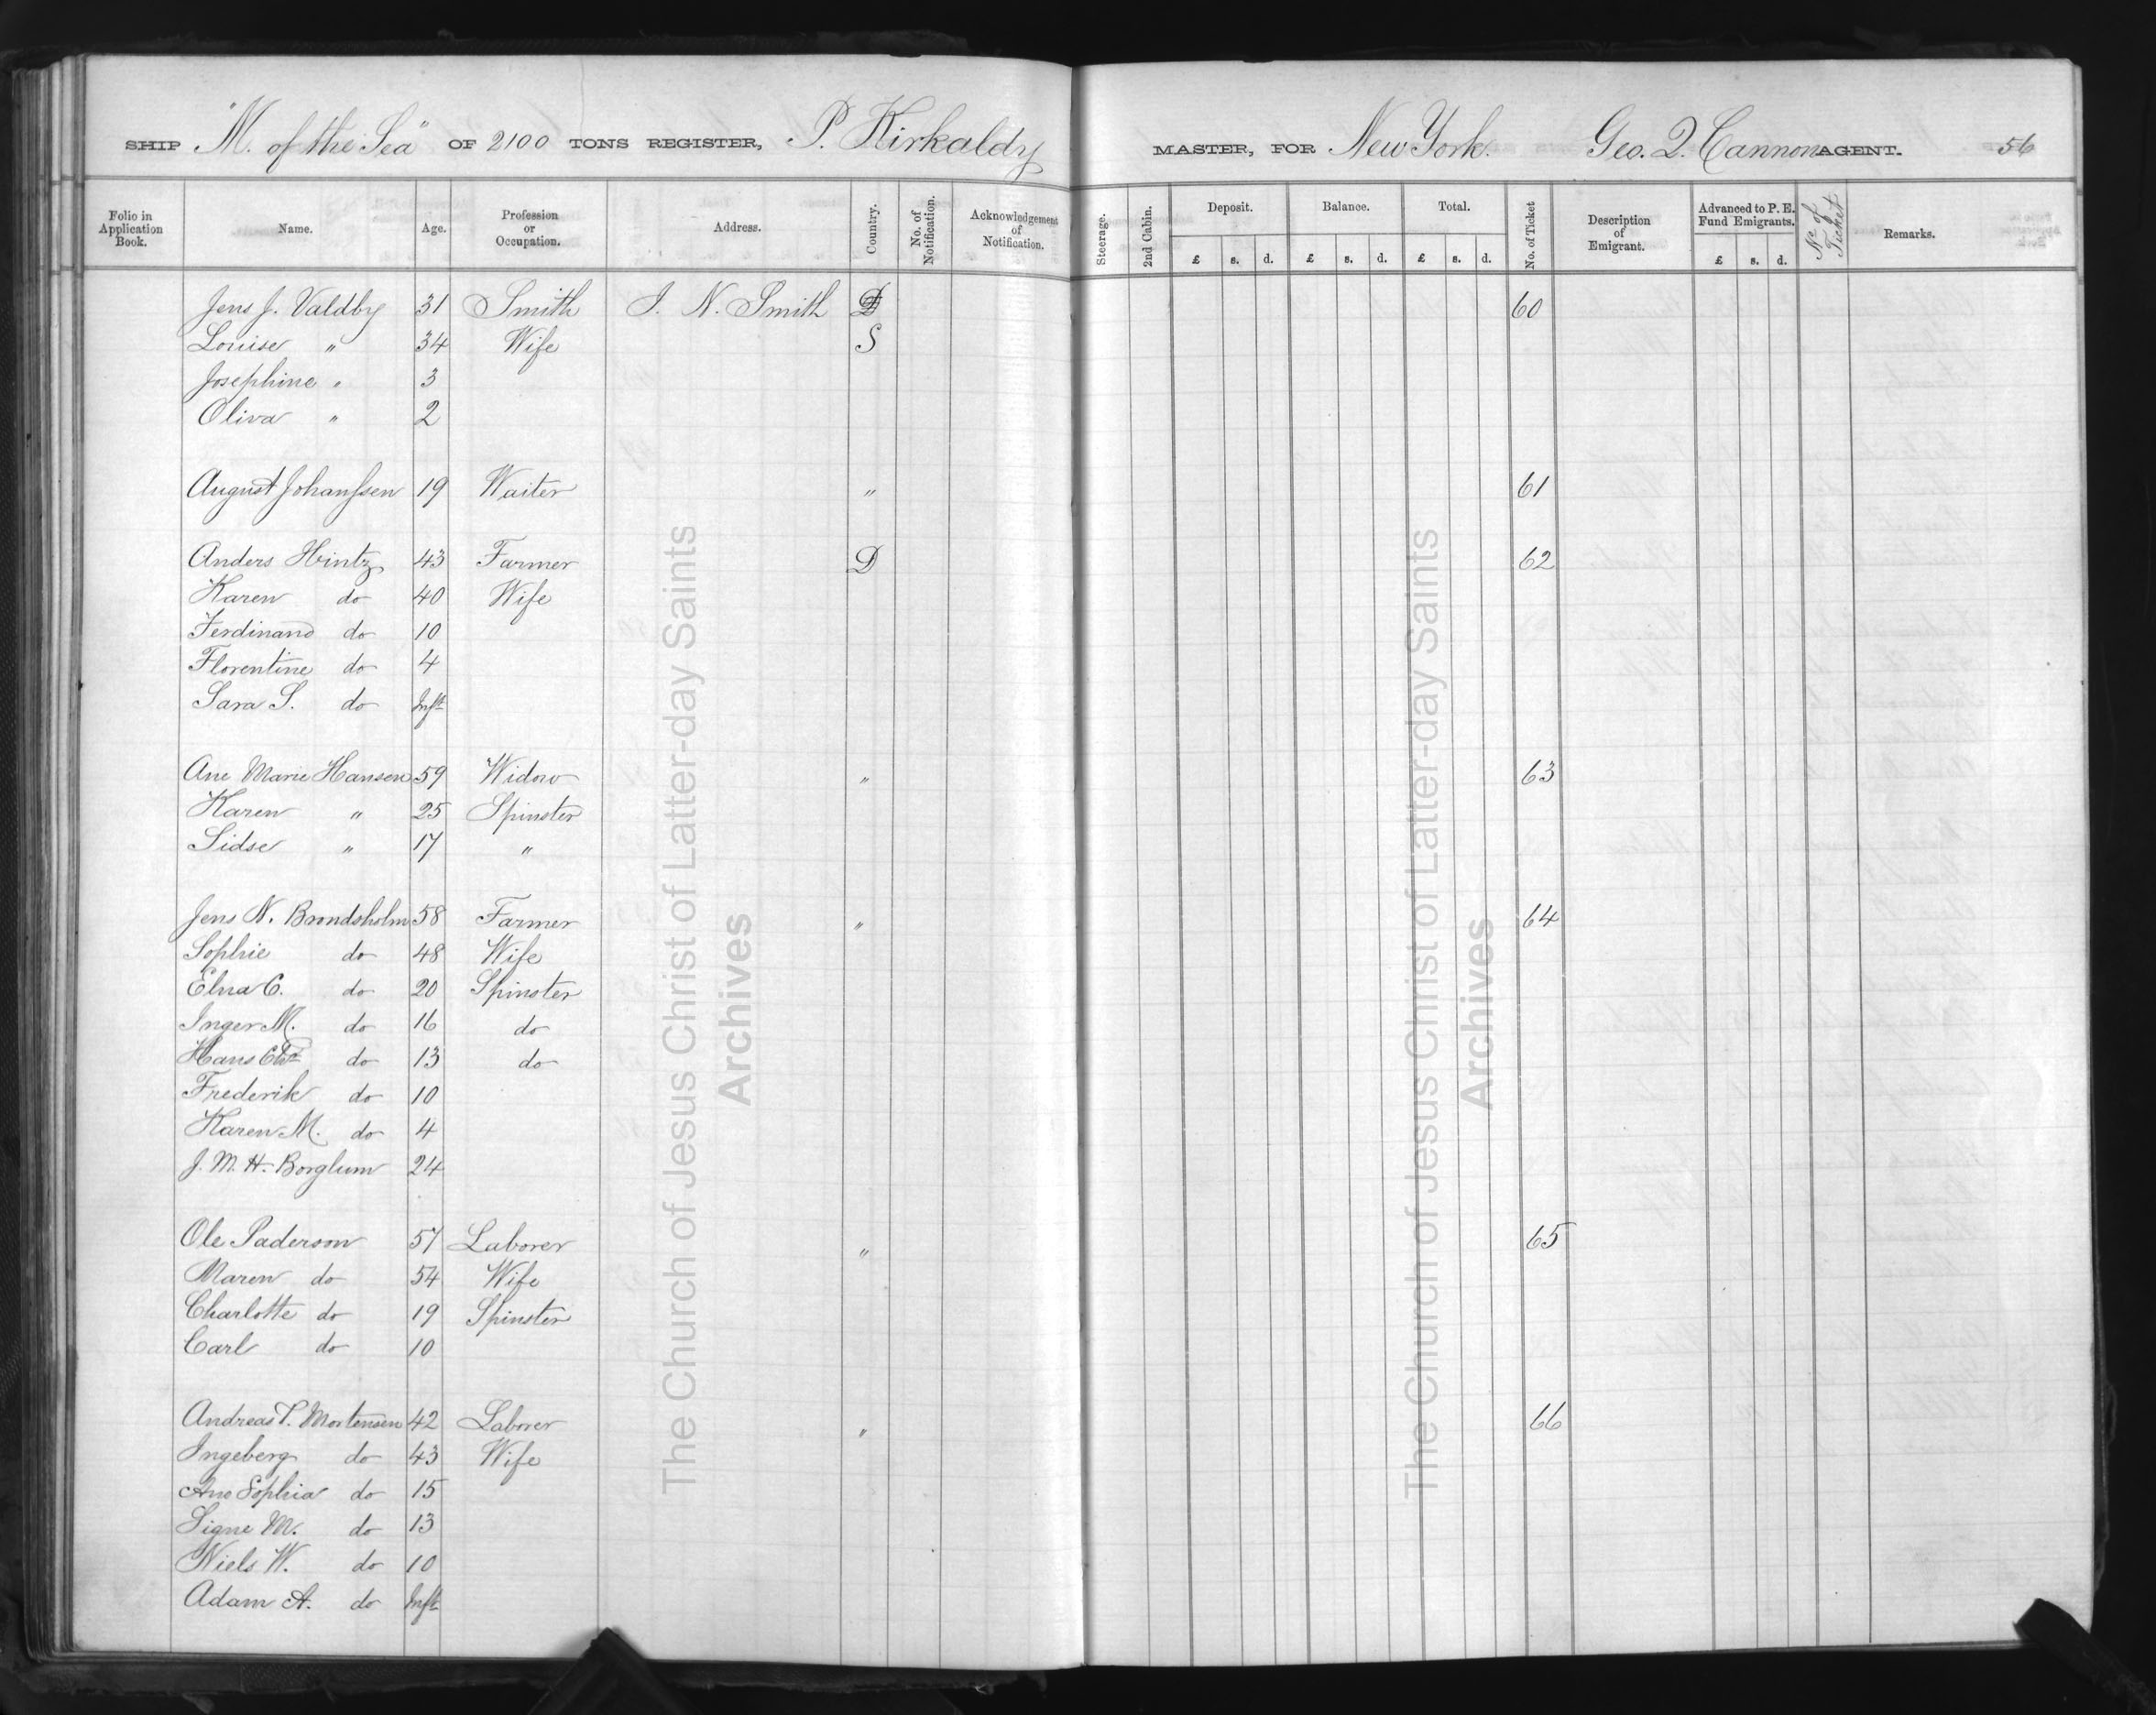 SHIP "M. of the Sea" OF 2100 TONS REGISTER, P. Kirkaldy MASTER, FOR New York. Geo. Q. Cannon AGENT. 56
Folio in Application Book. Name. Age. Profession or Occupation. Address. Country. No. of Notification. Acknowledgement of Notification. Steerage. 2nd Cabin. Deposit. Balance. Total. No. of Ticket Description of Emigrant. Advanced to P. E. Fund Emigrants. No of Ticket Remarks.
£ s. d. £ s. d. £ s. d. £ s. d.
Jens J. Valdby 31 Smith J. N. Smith D 60
Louise " 34 Wife S
Josephine " 3
Oliva " 2
August Johanssen 19 Waiter " 61
Anders Hintz 43 Farmer D 62
Karen do 40 Wife
Ferdinand do 10
Florentine do 4
Sara S. do Inft
Ane Marie Hansen 59 Widow " 63
Karen " 25 Spinster
Sidse " 17 "
Jens N. Brondsholm 58 Farmer " 64
Sophie do 48 Wife
Elna C. do 20 Spinster
Inger M. do 16 do
Hans do 13 do
Frederik do 10
Karen M. do 4
J. M. H. Borglum 24
Ole Paderson 57 Laborer " 65
Maren do 54 Wife
Charlotte do 19 Spinster
Carl do 10
Andreas P. Mortensen 42 Laborer " 66
Ingeberg do 43 Wife
Ane Sophia do 15
Signe M. do 13
Niels W. do 10
Adam A. do Inft
The Church of Jesus Christ of Latter-day Saints
Archives
The Church of Jesus Christ of Latter-day Saints
Archives